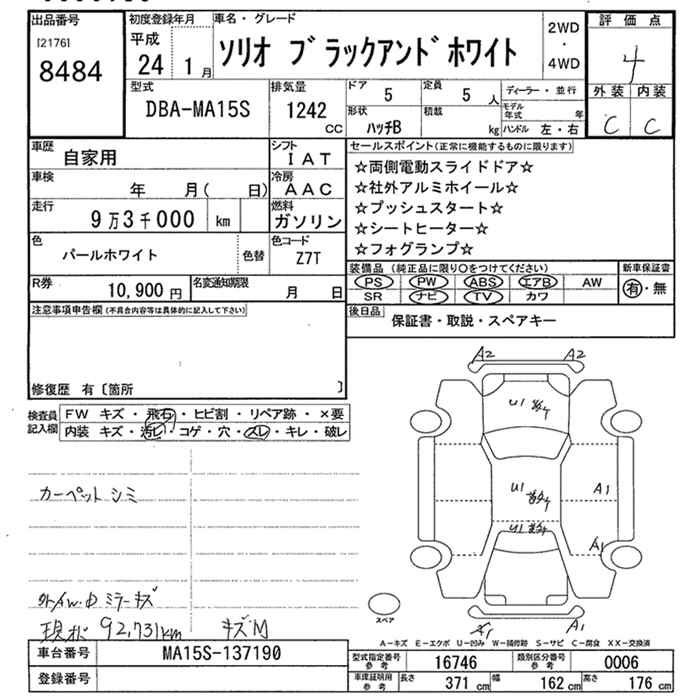 出品番号 初度登録年月 車名・グレード 評価点
[2176] 平成 ソリオ ブラックアンドホワイト 2WD ・ 4WD 4
8484 24 1月
外装 内装
型式 排気量 ドア 5 定員 5人 ディーラー・並行
DBA-MA15S 1242 cc 形状 ハッチB 積載 kg モデル年式 年
ハンドル 左・右 C C
車歴 自家用 シフト IAT セールスポイント(正常に機能するものに限ります)
車検 年 月( 日) 冷房 AAC ☆両側電動スライドドア☆
☆社外アルミホイール☆
走行 9万3千000 km 燃料 ガソリン ☆プッシュスタート☆
☆シートヒーター☆
色 パールホワイト 色替 色コード Z7T ☆フォグランプ☆
装備品(純正品に限り○をつけてください) 新車保証書
PS PW ABS エアB AW 有・無
R券 10,900円 名変通知期限 月 日 SR ナビ TV カワ
注意事項申告欄(不具合内容等は具体的に記入して下さい) 後日品 保証書・取説・スペアキー
修復歴 有〔箇所 〕
検査員記入欄 FW キズ・飛石・ヒビ割・リペア跡・×要
内装 キズ・汚レ・コゲ・穴・スレ・キレ・破レ
A2 A2
U1
カーペットシミ
U1 A1
U1
A1
ミラーキズ
現状 92,731km キズM
スペア
A1
A-キズ E-エクボ U-凹み W-補修跡 S-サビ C-腐食 XX-交換済
車台番号 MA15S-137190 型式指定番号 参考 16746 類別区分番号 参考 0006
登録番号 車検証明用 参考 長さ 371cm 幅 162cm 高さ 176cm